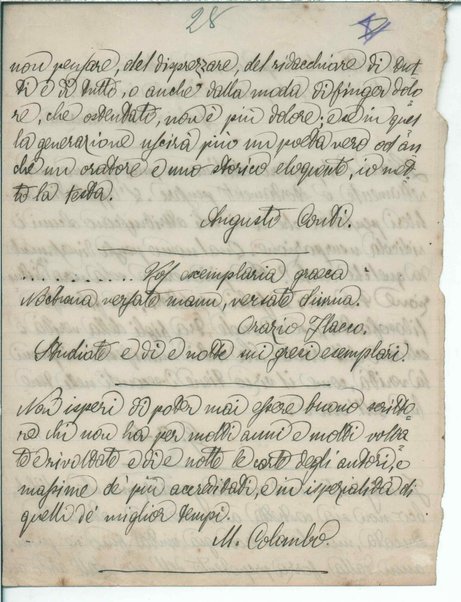 28
non pensare, del disprezzare, del ridacchiare di tut
ti e di tutto, o anche dalla moda di finger dolo
re, che ostentato, non è più dolore; e se in quel
la generazione uscirà più un poeta vero od an
che un oratore e uno storico eloquente, io met
to la testa.
Augusto Conti.
. . . . . . . . . . . Vos exemplaria graeca
Nocturna versate manu, versate diurna.
Orazio Flacco.
Studiate e dì e notte nei greci esemplari.
Non isperi di poter mai essere buono scritto
re chi non ha per molti anni e molti volta
te e rivoltate e dì e notte le carte degli autori, e
massime de' più accreditati, e in ispezialità di
quelli de' miglior tempi.
M. Colombo.